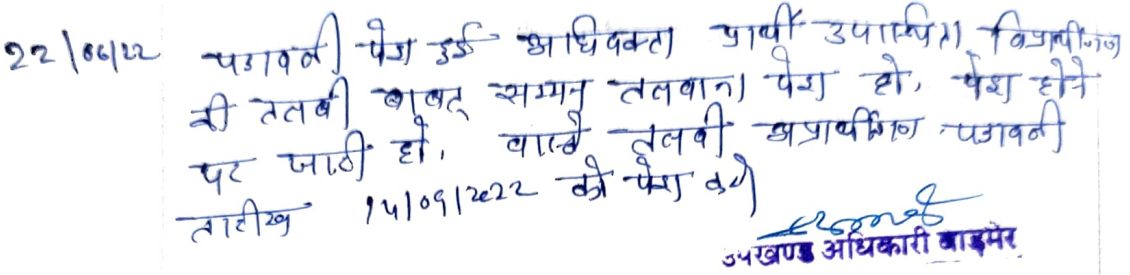 22/06/22 पत्रावली पेश हुई अधिवक्ता प्रार्थी उपस्थित। विप्रार्थीगण
की तलबी बाबत् सम्मन तलवाना पेश हो, पेश होने
पर जारी हो, वास्ते तलबी अप्रार्थीगण पत्रावली
तारीख 14/09/2022 को पेश करे
उपखण्ड अधिकारी बाड़मेर